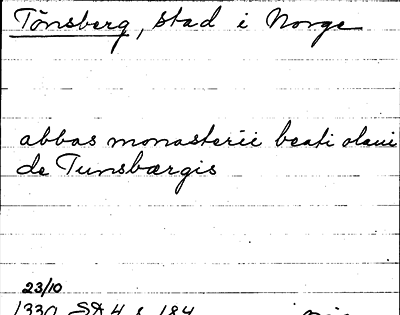 Tönsberg, stad i Norge
abbas monasterii beati olaui
de Tunsbærgis
23/10
1330 SD 4 s. 184